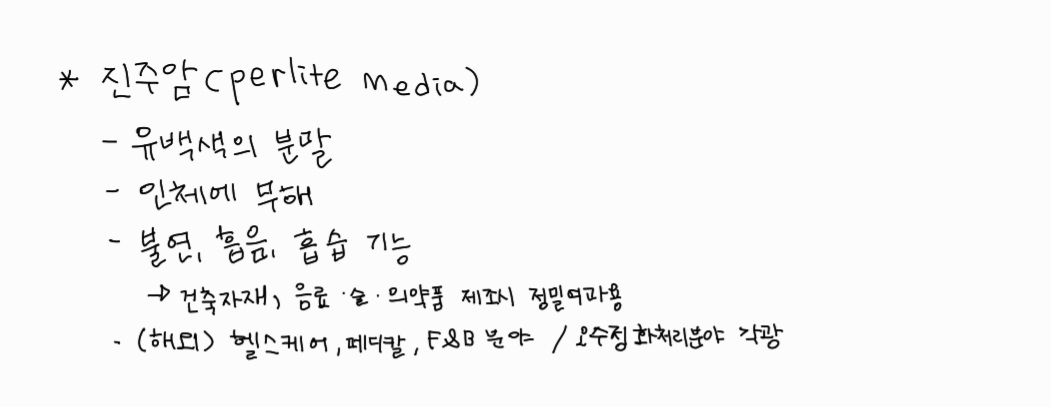 * 진주암(perlite media)
- 유백색의 분말
- 인체에 무해
- 불연, 흡음, 흡습 기능
→ 건축자재, 음료·술·의약품 제조시 정밀여과용
- (해외) 헬스케어, 메디칼, F&B 분야 / 오수정화처리분야 각광